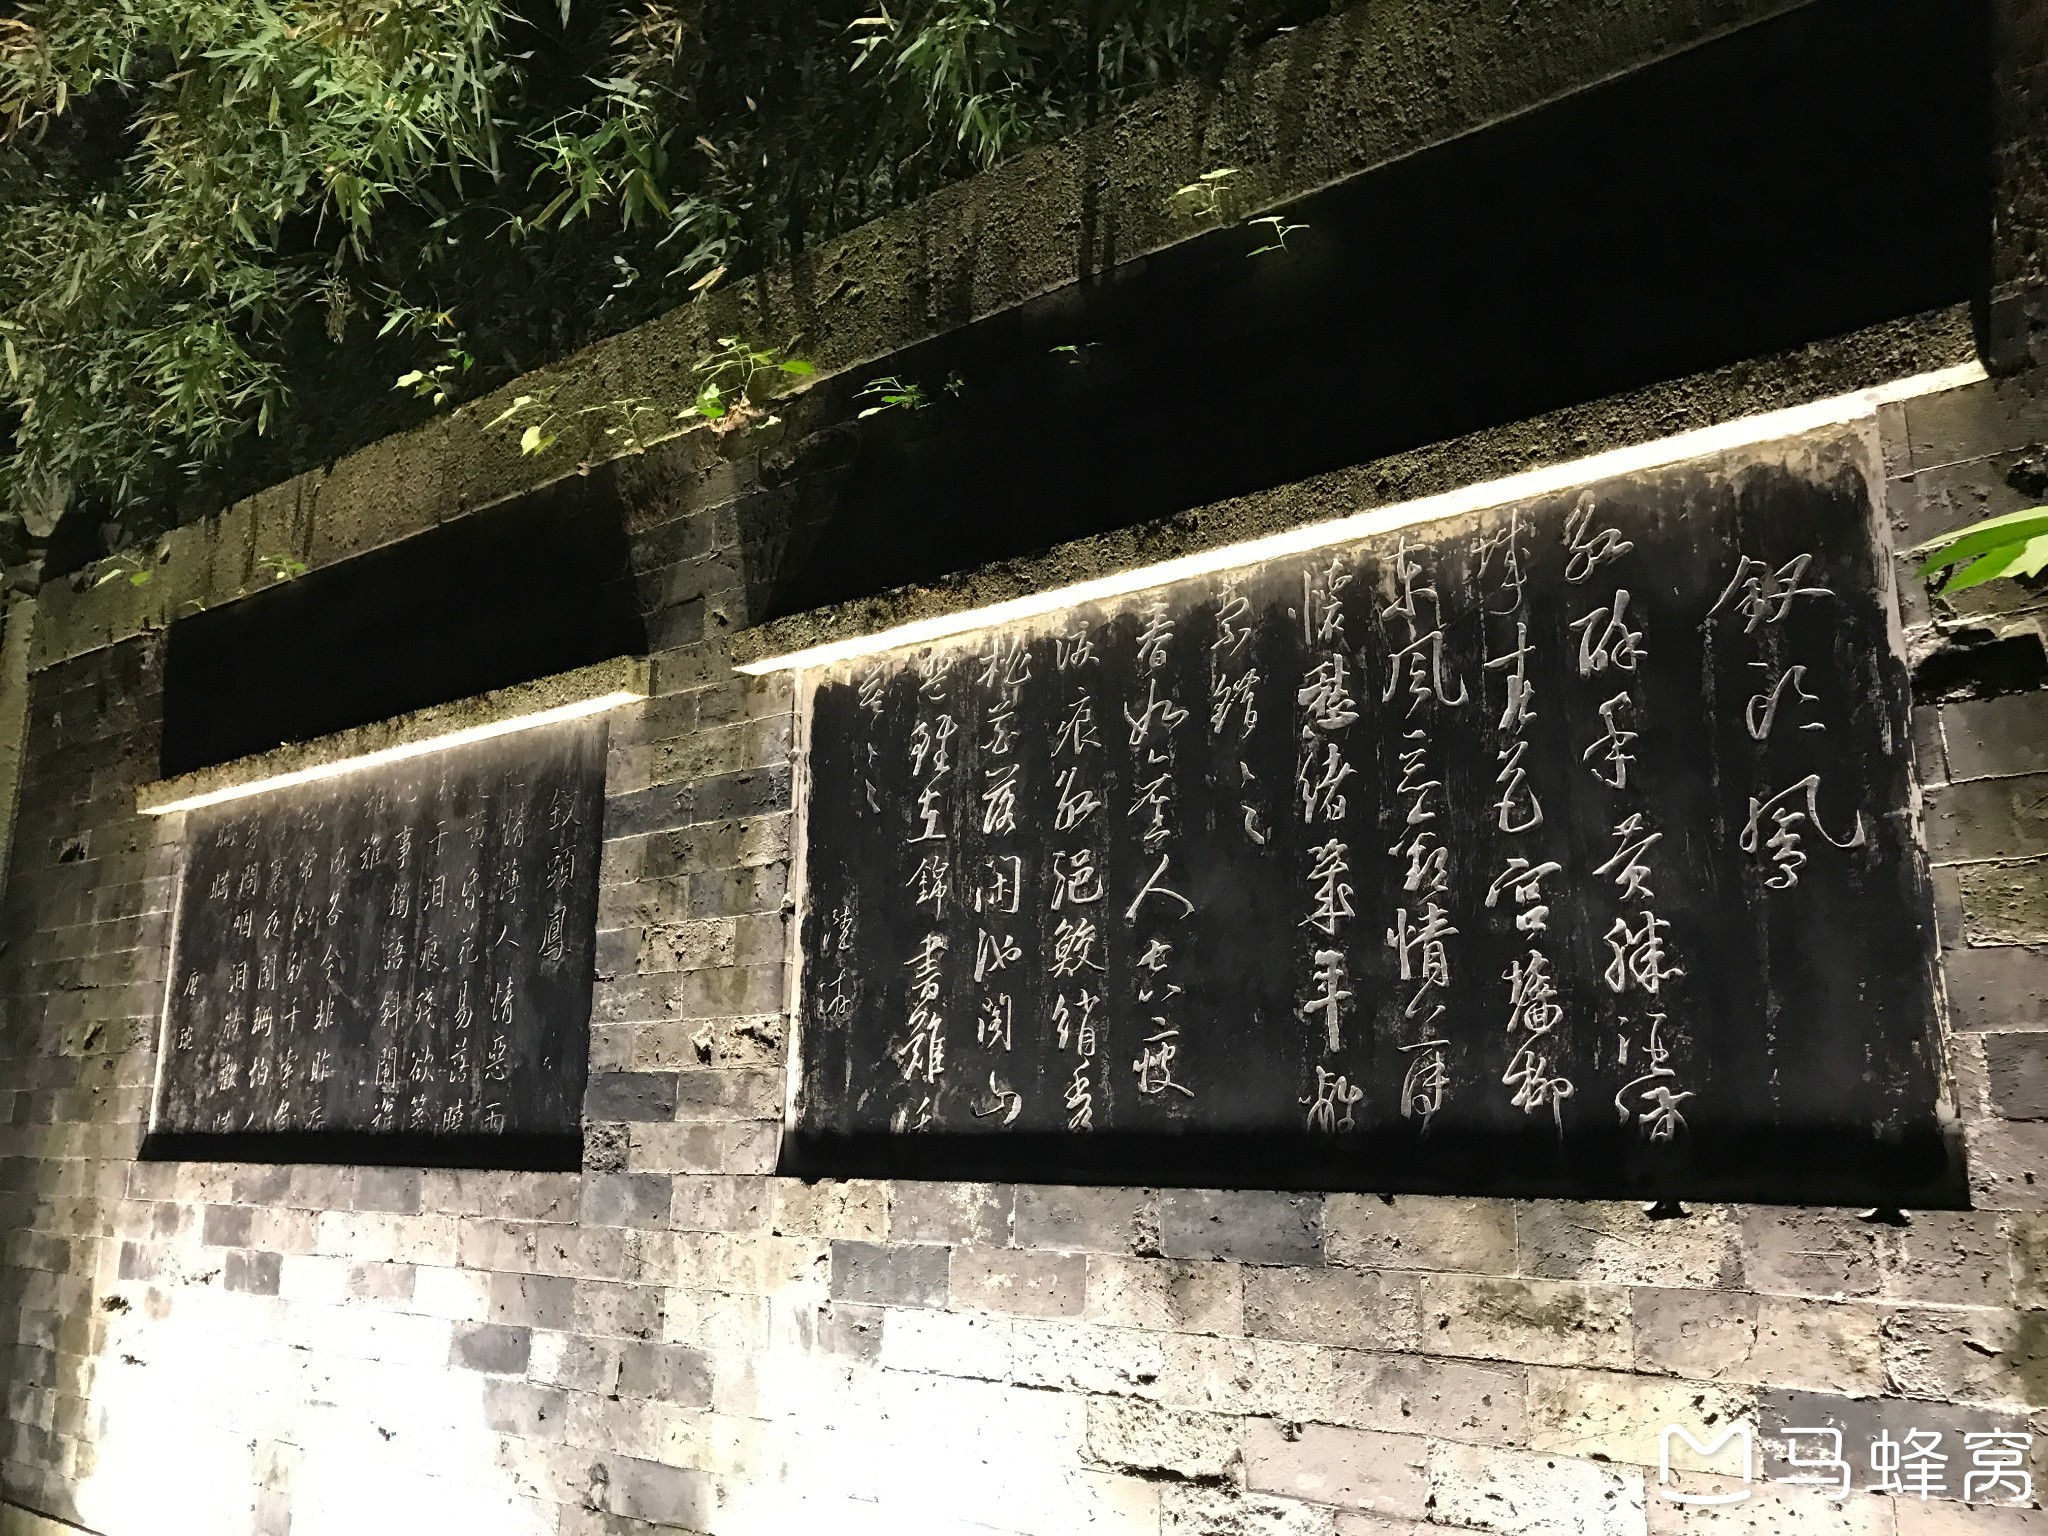 釵头凤
红酥手黄縢酒满
城春色宫牆柳
东风恶歡情薄一
懷愁緒幾年離
索錯〻〻
春如舊人空瘦
淚痕红浥鮫綃透
桃花落闲池阁山
盟雖在錦書難託
莫〻〻
陸游
釵頭鳳
世情薄人情惡雨
送黄昏花易落曉
風干泪痕殘欲箋
心事獨語斜闌難
難難
人成各今非昨病
魂常似秋千索角
聲寒夜闌珊怕人
尋問咽泪裝歡瞞
瞞瞞
唐琬
马蜂窝